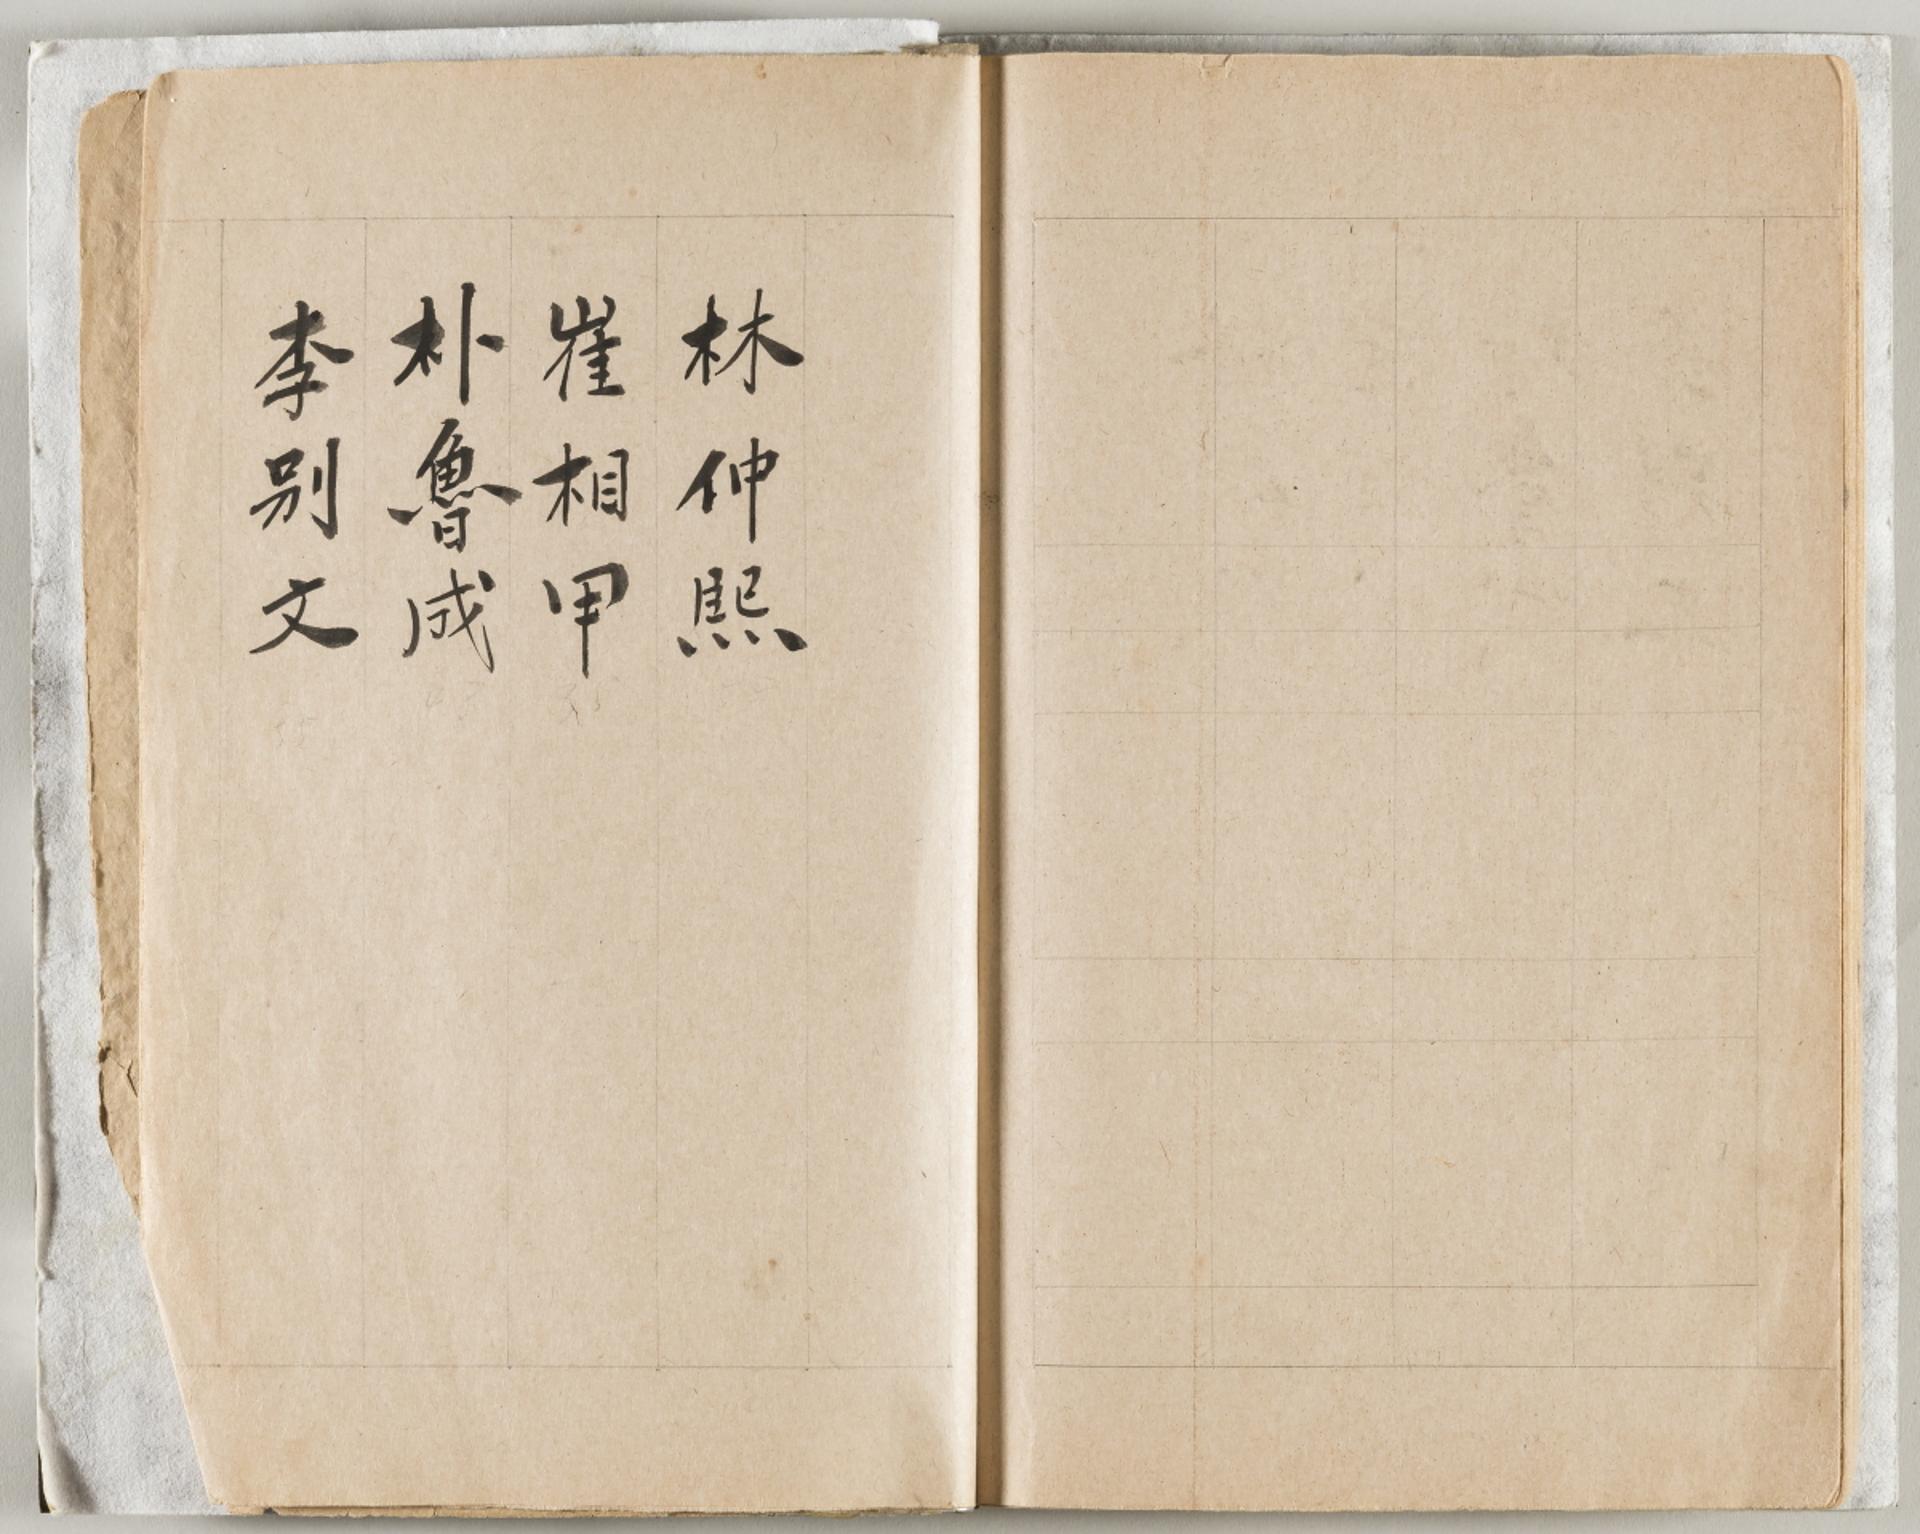 林仲熙
崔相甲
朴魯成
李別文